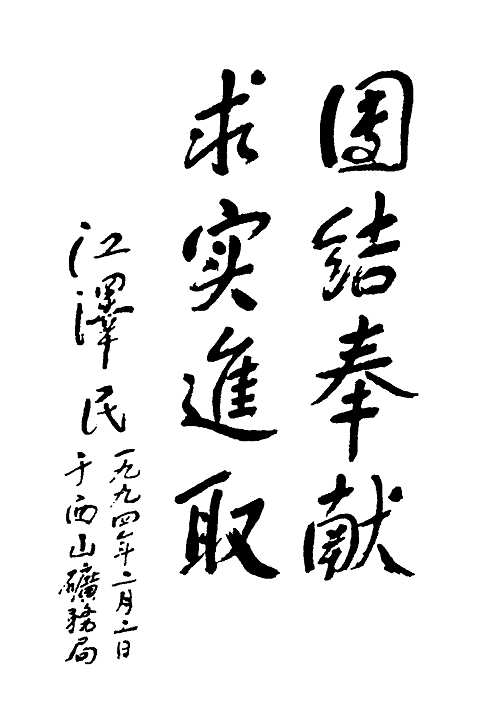 團结奉献
求实進取
江澤民
一九九四年二月二日
于西山礦務局